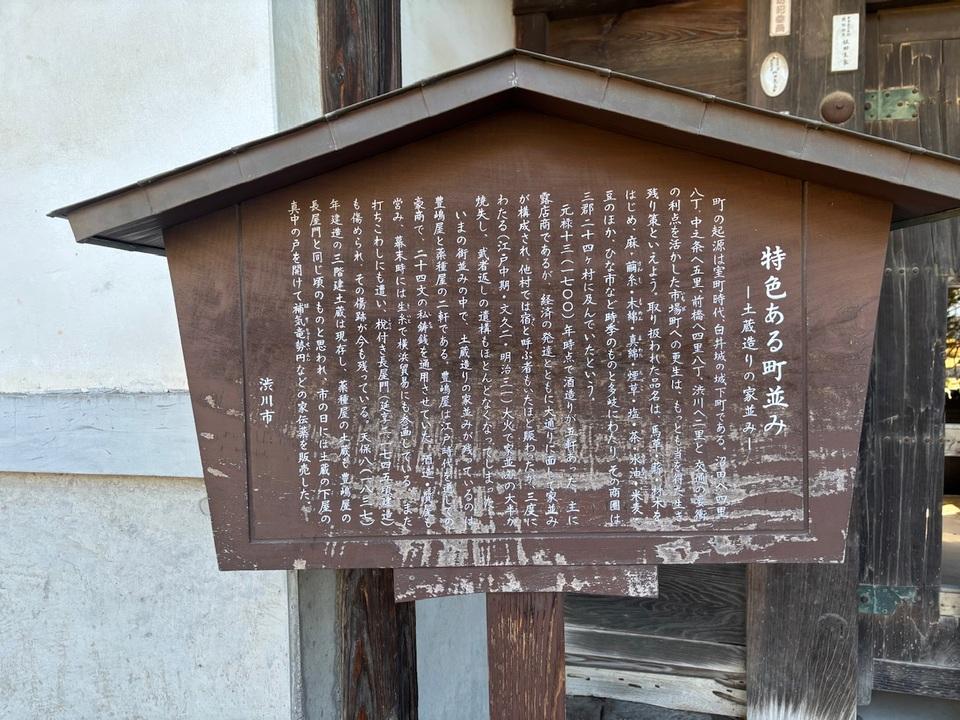 特色ある町並み
―土蔵造りの家並み―
町の起源は室町時代、白井城の城下町である。沼田へ四里
八丁、中之条へ五里、前橋へ四里八丁、渋川へ二里と、交通の要衝
の利点を活かした市場町への更生は、もっとも当を得た生き
残り策といえよう。取り扱われた品名は、
はじめ、麻・繭糸・木綿・真綿・煙草・塩・茶・水油・米麦・
豆のほか、ひな市など時季のものと多岐にわたり、その商圏は
三郡二十四ヶ村に及んでいたという。
元禄十三(一七〇〇)年時点で酒造りが五軒あった。主に
露店商であるが、経済の発達とともに大通りに面して家並み
が構成され、他村では宿と呼ぶ者もいたほど賑ったが、三度に
わたる(江戸中期・文久二・明治三一)大火で家並みの大半が
焼失し、武者返しの遺構もほとんどなくなってしまった。
いまの街並みの中で、土蔵造りの家並みが残っているのは、
豊嶋屋と薬種屋の二軒である。豊嶋屋は江戸時代を通しての
豪商で、二十四文の私鋳銭を通用させていた。酒造・質屋も
営み、幕末時には生糸で横浜貿易にも参画している。また
打ちこわしにも遭い、税付き長屋門(延享二・一七四五頃建造)
も傷められ、その傷跡が今も残っている。天保八(一八三七)
年建造の三階建土蔵は現存し、薬種屋の土蔵も豊嶋屋の
長屋門と同じ頃のものと思われ、市の日には土蔵の下屋の
真中の戸を開けて補気竜勢円などの家伝薬を販売した。
渋川市